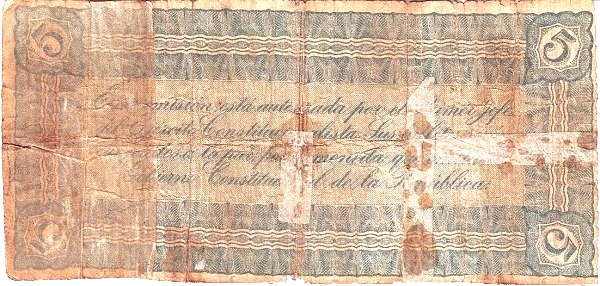 5 5
emisión está autorizada por el Primer Jefe
del Ejército Constitucionalista. Sus
a la par, por moneda
Gobierno Constitucional de la República.
5 5